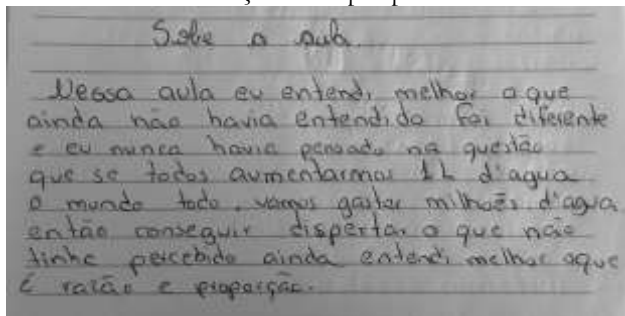 Sobre a aula.
Nessa aula eu entendi melhor o que
ainda não havia entendido foi diferente
e eu nunca havia pensado na questão
que se todos aumentarmos 1 L d'agua
o mundo todo, vamos gastar milhoẽs d'agua
então conseguir dispertar o que não
tinha percebido ainda entendi melhor oque
é razão e proporção.